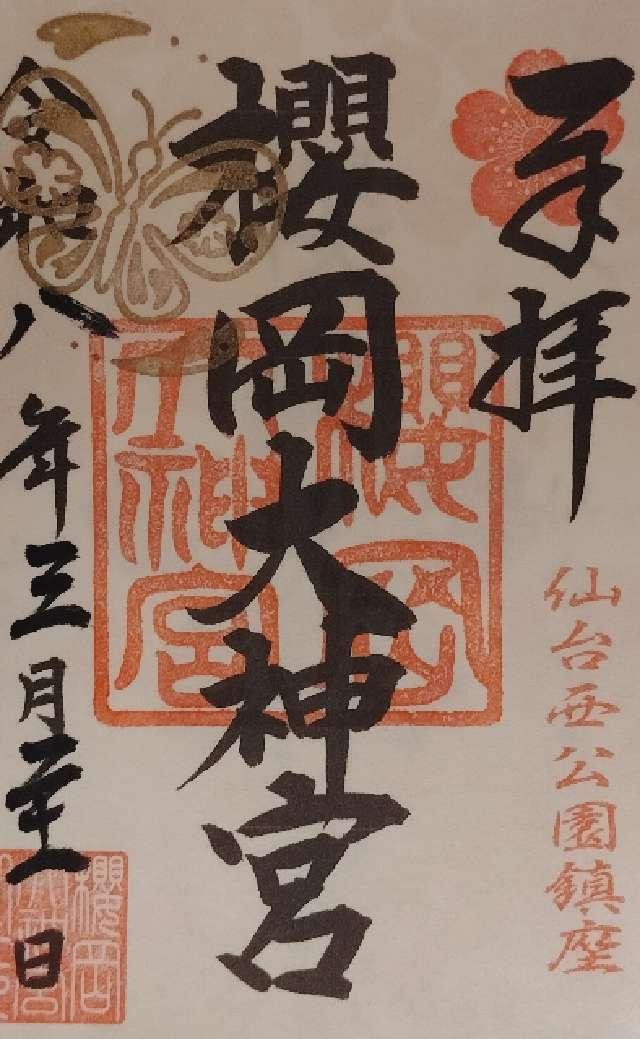 奉拝
仙台西公園鎮座
櫻岡大神宮
櫻岡
大神宮
令和八年三月二十一日
櫻岡
大神宮